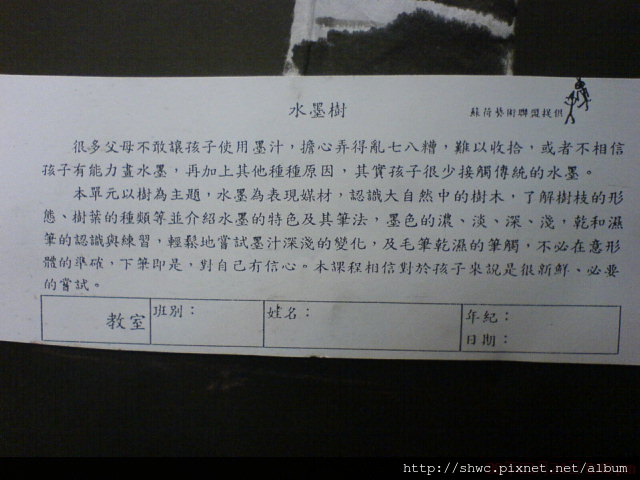 水墨樹
蘇荷藝術聯盟提供
很多父母不敢讓孩子使用墨汁，擔心弄得亂七八糟，難以收拾，或者不相信
孩子有能力畫水墨，再加上其他種種原因，其實孩子很少接觸傳統的水墨。
本單元以樹為主題，水墨為表現媒材，認識大自然中的樹木，了解樹枝的形
態、樹葉的種類等並介紹水墨的特色及其筆法，墨色的濃、淡、深、淺，乾和濕
筆的認識與練習，輕鬆地嘗試墨汁深淺的變化，及毛筆乾濕的筆觸，不必在意形
體的準確，下筆即是，對自己有信心。本課程相信對於孩子來說是很新鮮、必要
的嘗試。
教室
班別：
姓名：
年紀：
日期：
http://shwc.pixnet.net/album